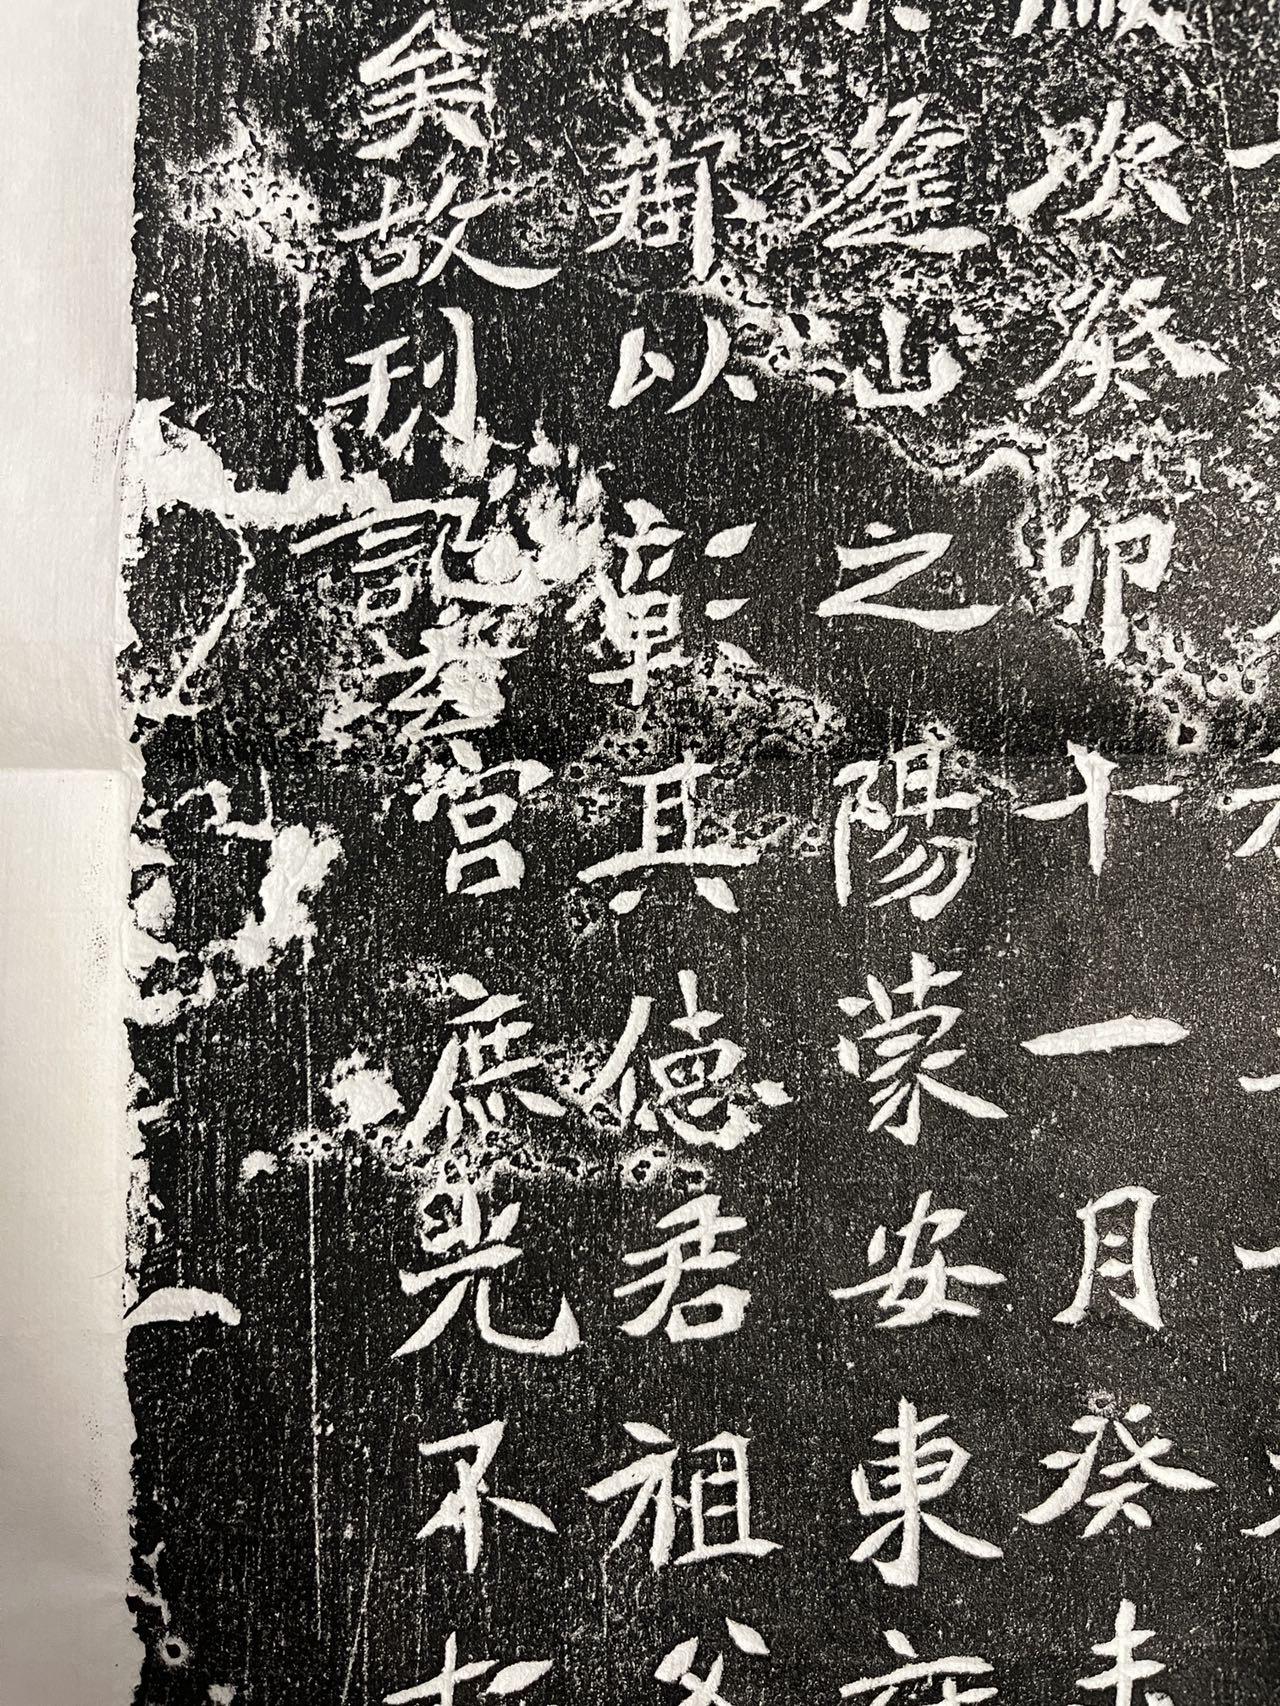 次癸卯十一月癸未
逢山之陽蒙安東府
以彰其德君祖父
矣故刊記宮庶光不朽